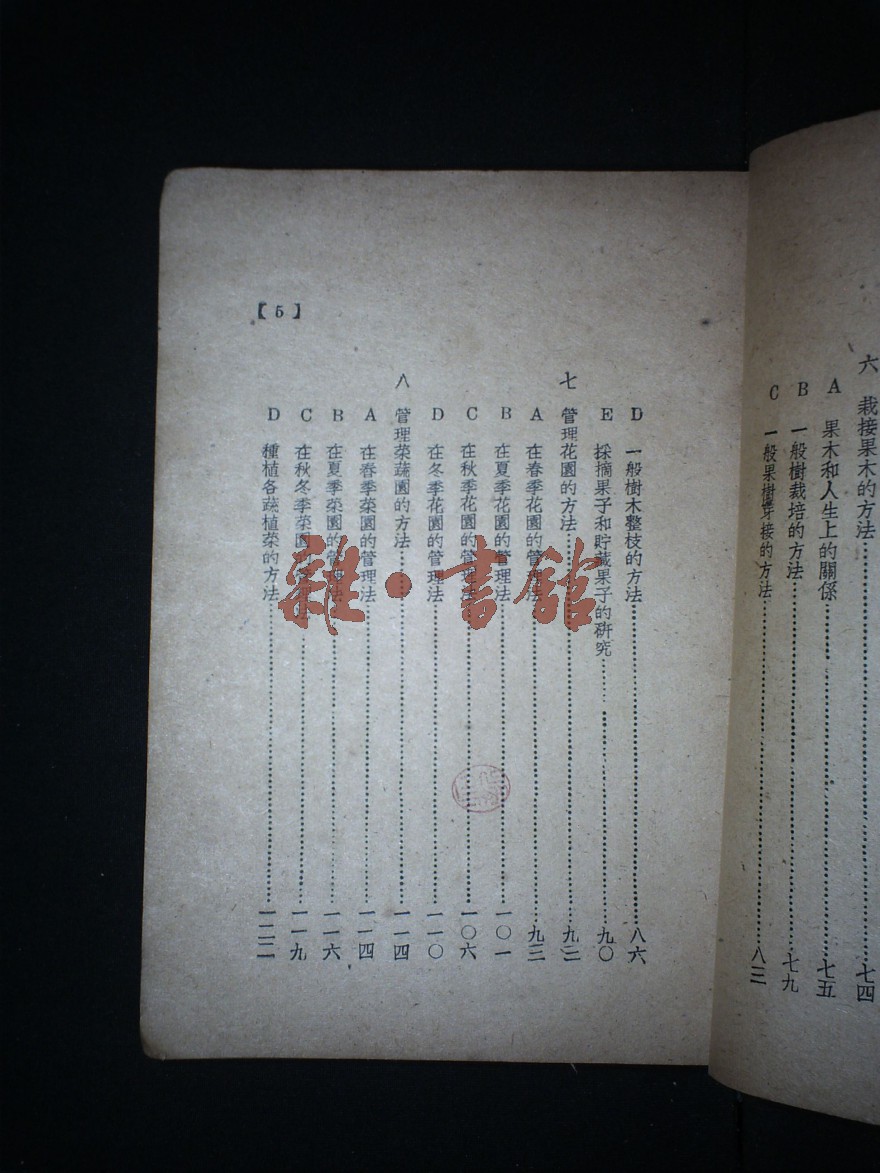 六 栽接果木的方法…………七四
A 果木和人生上的關係…………七五
B 一般樹栽培的方法…………七九
C 一般果樹芽接的方法…………八三
D 一般樹木整枝的方法…………八六
E 採摘果子和貯藏果子的研究…………九〇
七 管理花園的方法…………九二
A 在春季花園的管理法…………九三
B 在夏季花園的管理法…………一〇一
C 在秋季花園的管理法…………一〇六
D 在冬季花園的管理法…………一一〇
八 管理菜蔬園的方法…………一一四
A 在春季菜園的管理法…………一一四
B 在夏季菜園的管理法…………一一六
C 在秋冬季菜園的管理法…………一一九
D 種植各蔬植菜的方法…………一二二
【5】
雜·書館